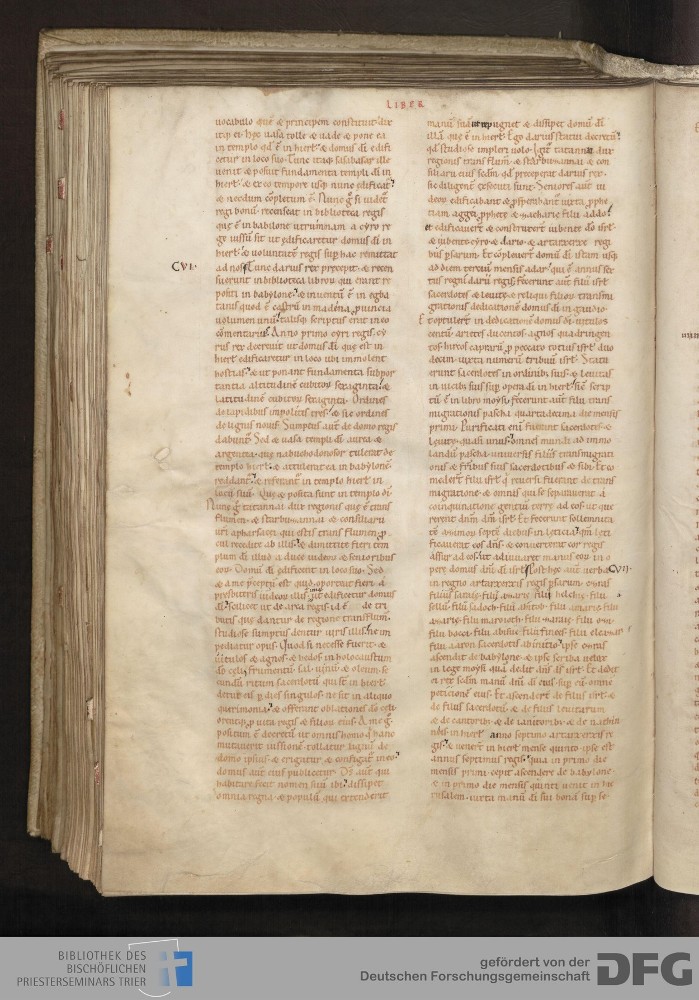 LIBER
vocabulo quē & principem constituit dix
itq; ei. Hęc vasa tolle & uade & pone ea
in templo qđ ē in hierłm & domus dī edifi
cetur in loco suo. Tunc itaq; sasabasar ille
uenit & posuit fundamenta templi dī in
hierłm & ex eo tempore usq; nunc edificat᷑
& necdum cōpletum ē. Nunc g̊ si uidet᷑
regi bonū recenseat in biblioteca regis
quę ē in babilone utrumnam a cyro re
ge iussū sit ut edificaretur domus dī in
hierłm & uoluntatē regis sup̄ hac re mittat
CVI.
ad nos. Tunc darius rex precepit & recen
suerunt in biblioteca librorū qui erant re
positi in babylone & inuentū ē in egba
tanis quod ē castrū in madena prouincia
uolumen unū talisq; scriptus erat in eo
cōmentarius. Anno primo cyri regis cy
rus rex decreuit ut domus dī quę est in
hierłm edificaretur in loco ubi immolent
hostias & ut ponant fundamenta suppor
tantia altitudinē cubitorū sexaginta &
latitudinē cubitorū sexaginta. Ordines
de lapidibus impolitis tres & sic ordines
de lignis nouis. Sumptus aut̄ de domo regis
dabunt᷑ Sed & uasa templi dī aurea &
argentea quę nabuchodonosor tulerat de
templo hierłm & attulerat ea in babylonē
reddant᷑ & referant᷑ in templo hierłm in
locū suū. Quę & posita sunt in templo dī
Nunc g̊ tatannai dux regionis quę ē trans
flumen & starbuzannai & consiliarii
uri apharsacei qui estis trans flumen p
cul recedite ab illis & dimittite fieri tem
plum dī illud a duce iudeorū & senioribus
eorū. Domū dī edificent in loco suo. Sed
& a me p̄ceptū est quid oporteat fieri a
presbiteris iudeorū illis ut edificetur domus
dī scilicet ut de arca regis id ē de tri
butis quę dantur de regione transflum̄
studiose sumptus dentur uiris illis ne im
pediatur opus. Quod si necesse fuerit &
uitulos & agnos & hedos in holocaustum
dō celi frumentū sal uinū & oleum se
cundū ritum sacerdotū qui st̄ in hierłm
detur eis p dies singulos ne sit in aliquo
querimonia & offerant oblationes dō celi
orentq; p uita regis & filiorū eius. A me g̊
positum ē decretū ut omnis homo q̇ hanc
mutauerit iussionē tollatur lignū de
domo ipsius & erigatur & configat᷑ in eo
domus aut̄ eius publicetur. Ds̄ aut̄ qui
habitare fecit nomen suū ibi dissipet
omnia regna & populū qui extenderit
manū suā ut repugnet & dissipet domū dī
illā quę ē in hierłm. Ego darius statui decretū
qđ studiose impleri uolo. Igit᷑ tatannai dux
regionis trans flumē & starbuzannai & con
siliarii eius secdm̄ qđ preceperat darius rex
sic diligent᷑ executi sunt. Seniores aut̄ iu
deorū edificabant & psperabant᷑ iuxta pphe
tiam aggei pphetę & zacharię filii addo
et edificauer̄ & construxer̄ iubente dō isrł
& iubente cyro & dario & artaxerxe regi
bus p̄sarum. Et cōpleuer̄ domū dī istam usq;
ad diem terciū mensis adar qui ē annus sex
tus regni darii regis. Fecerunt aut̄ filii isrł
sacerdotes & leuitę & reliqui filiorū transmi
grationis dedicationē domus dī in gaudio.
Et optuler̄ in dedicationē domus dī uitulos
centū arietes ducentos agnos quadringen
tos hircos caprarū p peccato totius isrł duo
decim iuxta numerū tribuū isrł. Statu
erunt sacerdotes in ordinibȝ suis & leuitas
in uicibȝ suis sup̄ opera dī in hierłm sic scrip
tū ē in libro moysi. Fecerunt aut̄ filii trans
migrationis pascha quartadecima die mensis
primi. Purificati enī fuerant sacerdotes &
leuitę quasi unus omnes mundi ad immo
landū pascha uniuersis filiis transmigrati
onis & fribus suis sacerdotibus & sibi. Et co
medert̄ filii isrł q̇ reuersi fuerant de trans
migratione & omnis qui se separauerat a
coinquinatione gentiū terrę ad eos ut quę
rerent dnm̄ dm̄ isrł. Et fecerunt sollemnita
tē azimorū septē diebus in leticia qm̄ leti
ficauerat eos dn̄s & conuerterat cor regis
assur ad eos ut adiuuaret manus eorū in o
pere domus dn̄i dī isrł. Post hęc aut̄ uerba CVII.
in regno artaxerxis regis p̄sarum esdras
filius saraię filii azarię filii helchię filii
sellū filii sadoch filii achitob filii amarię filii
azarię filii maraioth filii zaraię filii ozi
filii bocci filii abisue filii finees filii eleazar
filii aaron sacerdotis ab initio ipse esdras
ascendit de babylone & ipse scriba uelox
in lege moysi quā dedit dn̄s ds̄ isrł. Et dedit
ei rex scdm̄ manū dn̄i dī eius sup̄ eū omnē
peticionē eius. Et ascender̄ de filiis isrł &
de filiis sacerdotū & de filiis leuitarum
& de cantoribȝ & de ianitoribȝ & de nathin
nęis in hierłm anno septimo artaxerxis re
gis & uener̄ in hierłm mense quinto ipse est
annus septimus regis. Quia in primo die
mensis primi cepit ascendere de babylone
& in primo die mensis quinti uenit in hie
rusalem iuxta manū dī sui bonā sup̄ se.
BIBLIOTHEK DES
BISCHÖFLICHEN
PRIESTERSEMINARS TRIER
gefördert von der
Deutschen Forschungsgemeinschaft
DFG